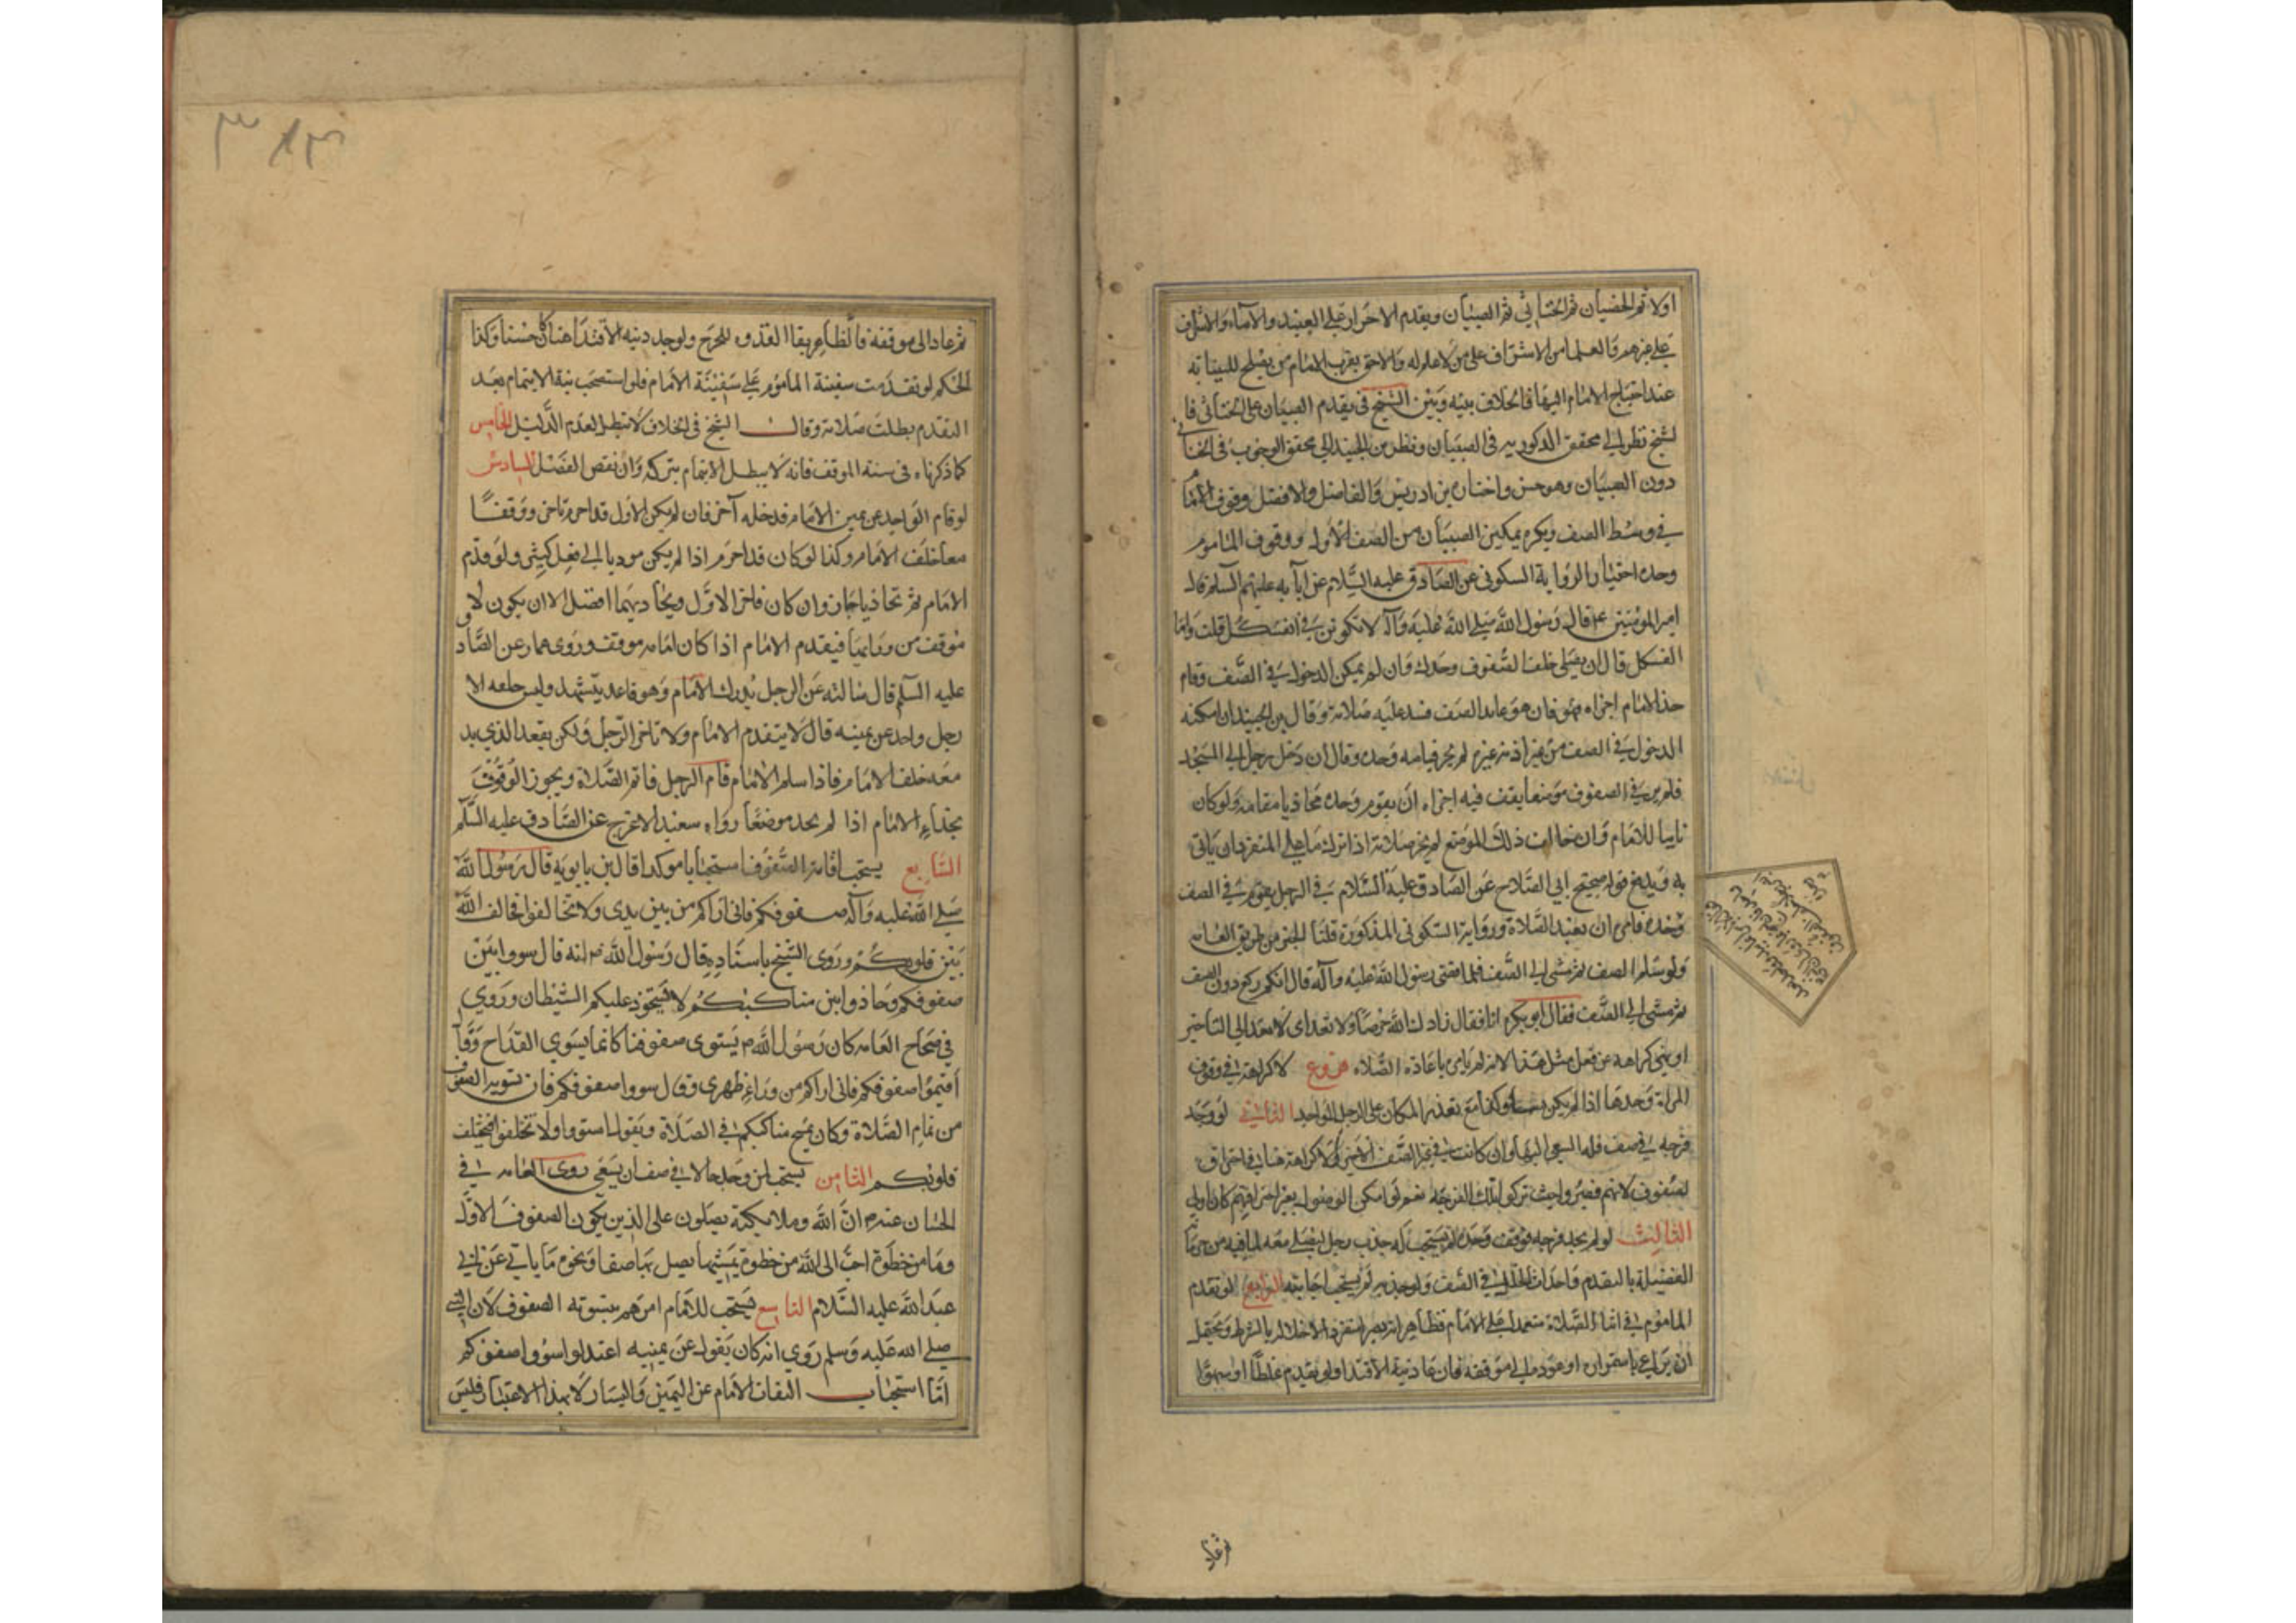 اولا ثم الخصيان ثم الخناثى ثم الصبيان ويقدم الاحرار على العبيد والاماء والاشراف
على غيرهم والعلما من الاشراف على من لا علم له والاحق بقرب الامام من يصلح للنيابة
عند احتياج الامام اليها فالخلاف بينه وبين الشيخ فى تقدم الصبيان على الخناثى فا
لشيخ نظر الى تحقق الذكوريه فى الصبيان ونظر بن الجنيد الى تحقق الوجوب فى الخناثى
دون الصبيان وهو حسن واختاره بن ادريس والفاضل والافضل وقوف الامام
في وسط الصف ويكره تمكين الصبيان من الصف الاول ووقوف الماموم
وحده اختيارا لرواية السكوني عن الصادق عليه السلام عن ابآيه عليهم السلم قال
امير المومنين ع قال رسول الله صلى الله عليه وآله لا تكونن في الفسكل قلت وما
الفسكل قال ان يصلى خلف الصفوف وحدك وان لم يمكن الدخول في الصف وقام
حذ الامام اجزاه فهو فان هو عاند الصف فسد عليه صلاته وقال بن الجنيد ان امكنه
الدخول في الصف من غير اذية غيره لم يجز قيامه وحده وقال ان دخل رجل الى المسجد
فلم ير في الصفوف موضعا يقف فيه اجزاه ان يقوم وحده محاذيا مقامه ولو كان
نابيا للامام وان خالف ذلك الموضع لم يجز صلاته اذا ترك ما على المنفرد ان ياتى
به قول صحيح ابى الصلاح عن الصادق عليه السلام في الرجل يقوم في الصف
وحده فامره ان يعيد الصلاة ورواية السكونى المذكورة قلنا الخبر من طريق العامه
الصف ثم مشى الى الصف فلما قضى رسول الله عليه وآله قال ايكم ركع دون الصف
ثم مشى الى الصف فقال ابو بكره انا فقال زادك الله حرصا ولا تعد اى لا تعد الى التاخير
او نهى كراهه عن فعل مثل هذا لانه لم يامره باعادة الصلاه فروع لا كراهة في وقوف
المراة وحدها اذا لم يكن نساء وكذا مع تعذر المكان على الرجل الواحد الثاني لو وجد
فرجه في صف فله السعى اليها وان كانت في غير الصف الاخير ولا كراهة هنا في اختراق
لصفوف لانهم قصروا حيث تركوا تلك الفرجه نعم لو امكن الوصول بغير اختراقهم كان اولى
الثالث لو لم يجد فرجه فوقف وحده لم يستحب له جذب رجل ليصلى معه لما فيه من حرمان
الفضيلة بالتقدم واحداث الخلل في الصف ولو جذبه لم يستحب اجابته الرابع لو تقدم
الماموم في اثناء الصلاة متعمدا على الامام فظاهر انه يصير منفردا لاخلاله بالشرط ويحتمل
ان يراعى باستمراره او عوده الى موقفه فان عاد نية الاقتداء ولو تقدم غلطا او سهوا
ثم عاد
ثم عاد الى موقفه فالظاهر بقا القدوه للحرج ولو جدد نيه الاقتدا هنا كان حسنا وكذا
الحكم لو تقدمت سفينة الماموم على سفينة الامام فلو استصحب نية الايتمام بعد
التقدم بطلت صلاته وقال الشيخ فى الخلاف لا تبطل لعدم الدليل الخامس
كما ذكرناه فى سنة الموقف فانه لا يبطل الايتمام بتركه وان نقص الفضل السادس
لو قام الواحد عن يمين الامام فدخل آخر فان لم يكن الاول قد احرم تاخر ووقفا
معا خلف الامام وكذا لو كان قد احرم اذا لم يكن موديا الى فعل كثير ولو قدم
الامام ثم تحاذيا جاز وان كان تاخر الاول ويحاديهما افضل الا ان يكون لا
موقف من ورائهما فيقدم الامام اذا كان امامه موقف وروى عمار عن الصاد
عليه السلم قال سالته عن الرجل يدرك الامام وهو قاعد يتشهد وليس خلفه الا
رجل واحد عن يمينه قال لا يتقدم الامام ولا تاخر الرجل ولكن يقعد الذي يد
معه خلف الامام فاذا سلم الامام قام الرجل فاتم الصلاة ويجوز الوقوف
بحذاء الامام اذا لم يجد موضعا رواه سعيد الاعرج عن الصادق عليه السلم
السابع يستحب اقامة الصفوف استحبابا موكدا قال بن بابويه قال رسول الله
صلى الله عليه وآله صفوفكم فانى اراكم من بين يدى ولا تخالفوا فيخالف الله
بين قلوبكم وروى الشيخ باسناده قال رسول الله ص انه قال سووا بين
صفوفكم وحاذوا بين مناكبكم لا يستحوذ عليكم الشيطان وروي
في صحاح العامه كان رسول الله ص يسوى صفوفنا كانما يسوي القداح وقال
اقيموا صفوفكم فانى اراكم من وراء ظهرى وقال سووا صفوفكم فان تسوية الصفوف
من تمام الصلاة وكان يمسح مناكبكم في الصلاة ويقول استووا ولا تختلفوا فتختلف
قلوبكم الثامن يستحب لمن وجد خللا في صف ان يسعى روى العامه في
الحسان عنه ص ان الله وملايكته يصلون على الذين يلون الصفوف الاول
وما من خطوة احب الى الله من خطوة يمشيها يصل بها صفا ونحوه ما ياتى عن ابى
عبد الله عليه السلام التاسع يستحب للامام امرهم بتسوية الصفوف لان النبى
صلى الله عليه وسلم روي انه كان يقول عن يمينه اعتدلوا سووا صفوفكم
اما استحباب التفات الامام عن اليمين واليسار لا بهذا الاعتبار فليس